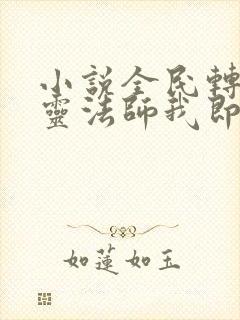 小说全民轉
靈法師我即
如蓮如玉